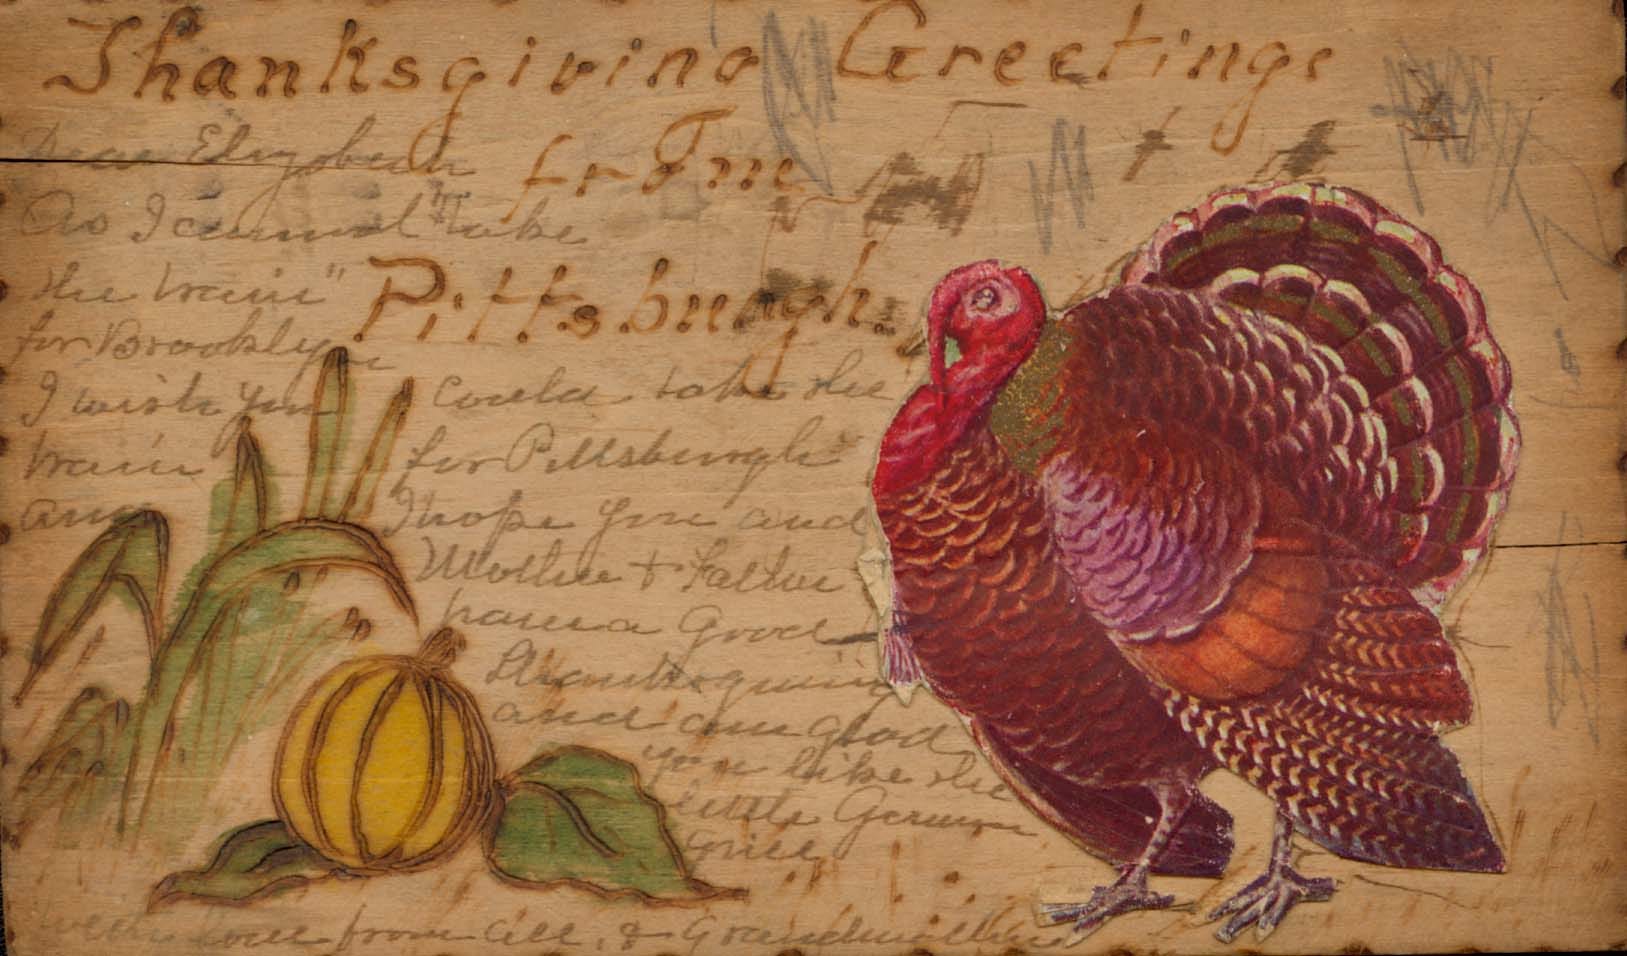 Thanksgiving Greetings
from
Pittsburgh.
Dear Elizabeth
As I cannot "Take
the train"
for Brooklyn
I wish you could take the
train for Pittsburgh
and I hope you and
Mother + Father
have a Good
Thanksgiving
and am glad
you like the
little German
Girl
love from all, & Grandmother